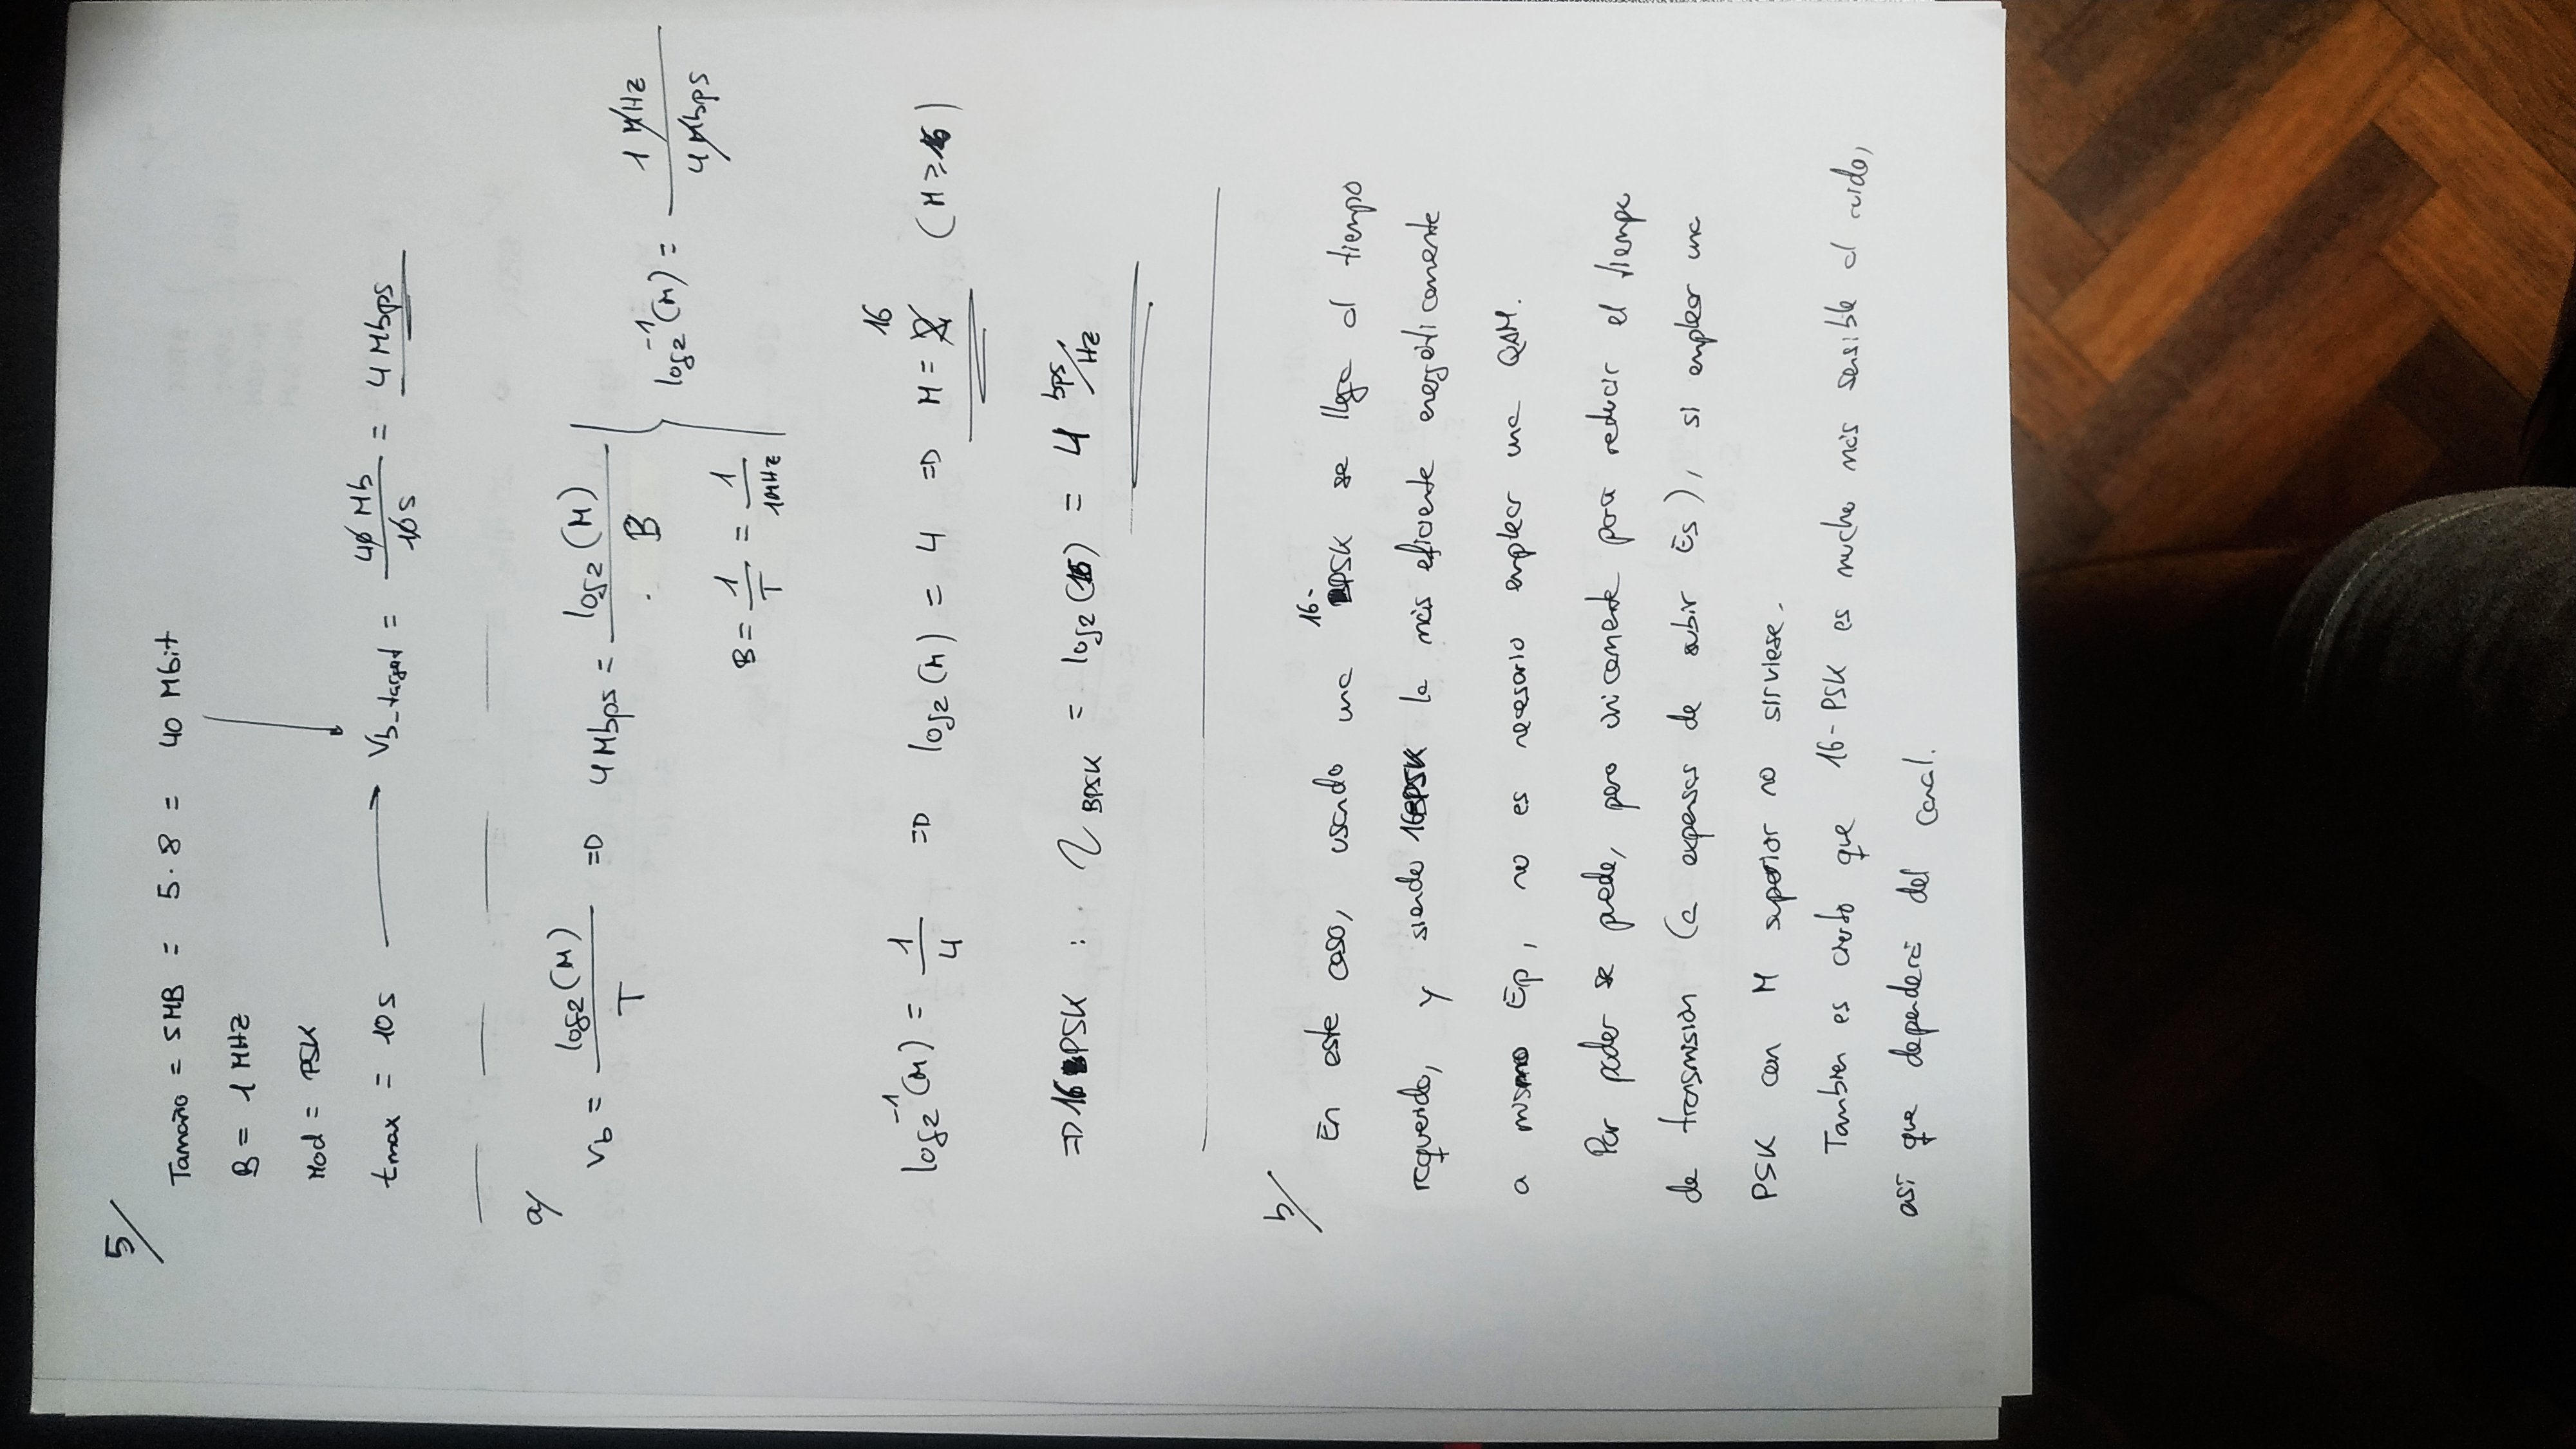 5/
Tamaño = 5MB = 5·8 = 40 Mbit
B = 1 MHz
Mod = PSK
tmax = 10s → Vb_target = 40 Mb / 10s = 4 Mbps
a/
Vb = log2(M) / T => 4 Mbps = log2(M) / B
log2^-1(M) = 1 MHz / 4 Mbps
B = 1/T = 1/1MHz
log2^-1(M) = 1/4 => log2(M) = 4 => M = 16 (M ≥ 16)
=> 16 PSK : η BPSK = log2(16) = 4 bps/Hz
b/
En este caso, usando una 16-PSK se llega al tiempo
requerido, y siendo 16PSK la más eficiente energéticamente
a mismo Ep, no es necesario emplear una QAM.
Por poder se puede, pero únicamente para reducir el tiempo
de transmisión (a expensas de subir Es), si emplear una
PSK con M superior no sirviese.
Tambien es cierto que 16-PSK es mucho más sensible al ruido,
así que dependerá del canal.